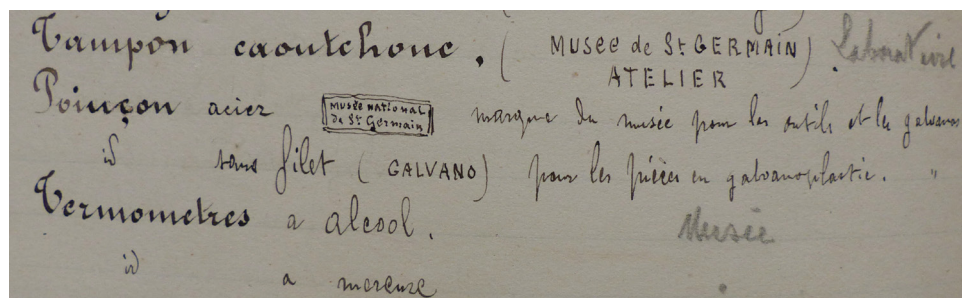 Tampon caoutchouc. ( MUSEE de St GERMAIN ) Laboratoire
ATELIER
Poinçon acier MUSÉE NATIONAL de St Germain marque du musée pour les outils et les galvanos
id sans filet ( GALVANO ) pour les pièces en galvanoplastie. "
Termometres a alcool. Musée
id a mercure